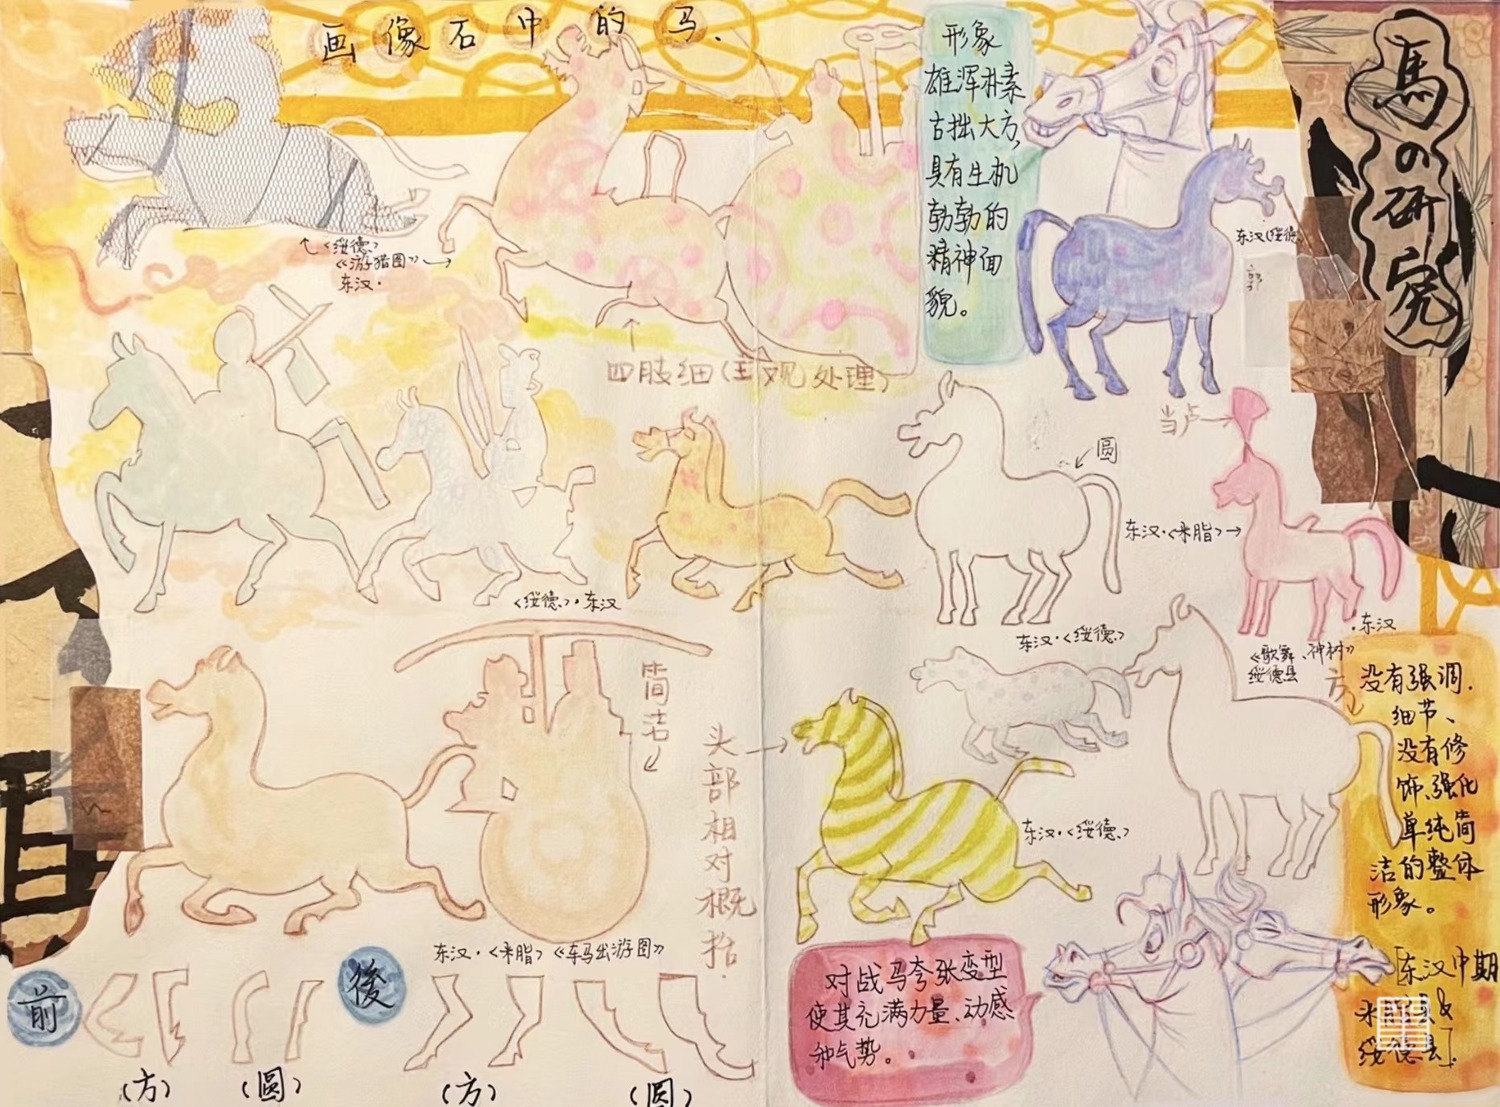 画像石中的马.
馬の研究
形象
雄浑朴素
古拙大方，
具有生机
勃勃的
精神面
貌。
东汉(绥德
↑<绥德>
《游猎图》→
东汉·
四肢细(主观处理)
当卢→
圆
东汉·<米脂>→
<绥德>·东汉
东汉·<绥德>
·东汉
《歌舞、神树》
绥德县
方
简洁
头部相对概括.
东汉·<绥德>
没有强调.
细节、
没有修
饰、强化
单纯简
洁的整体
形象。
东汉·<米脂>《车马出游图》
前
後
(方)
(圆)
(方)
(圆)
对战马夸张变型
使其充满力量、动感
和气势。
[东汉中期
绥德县].